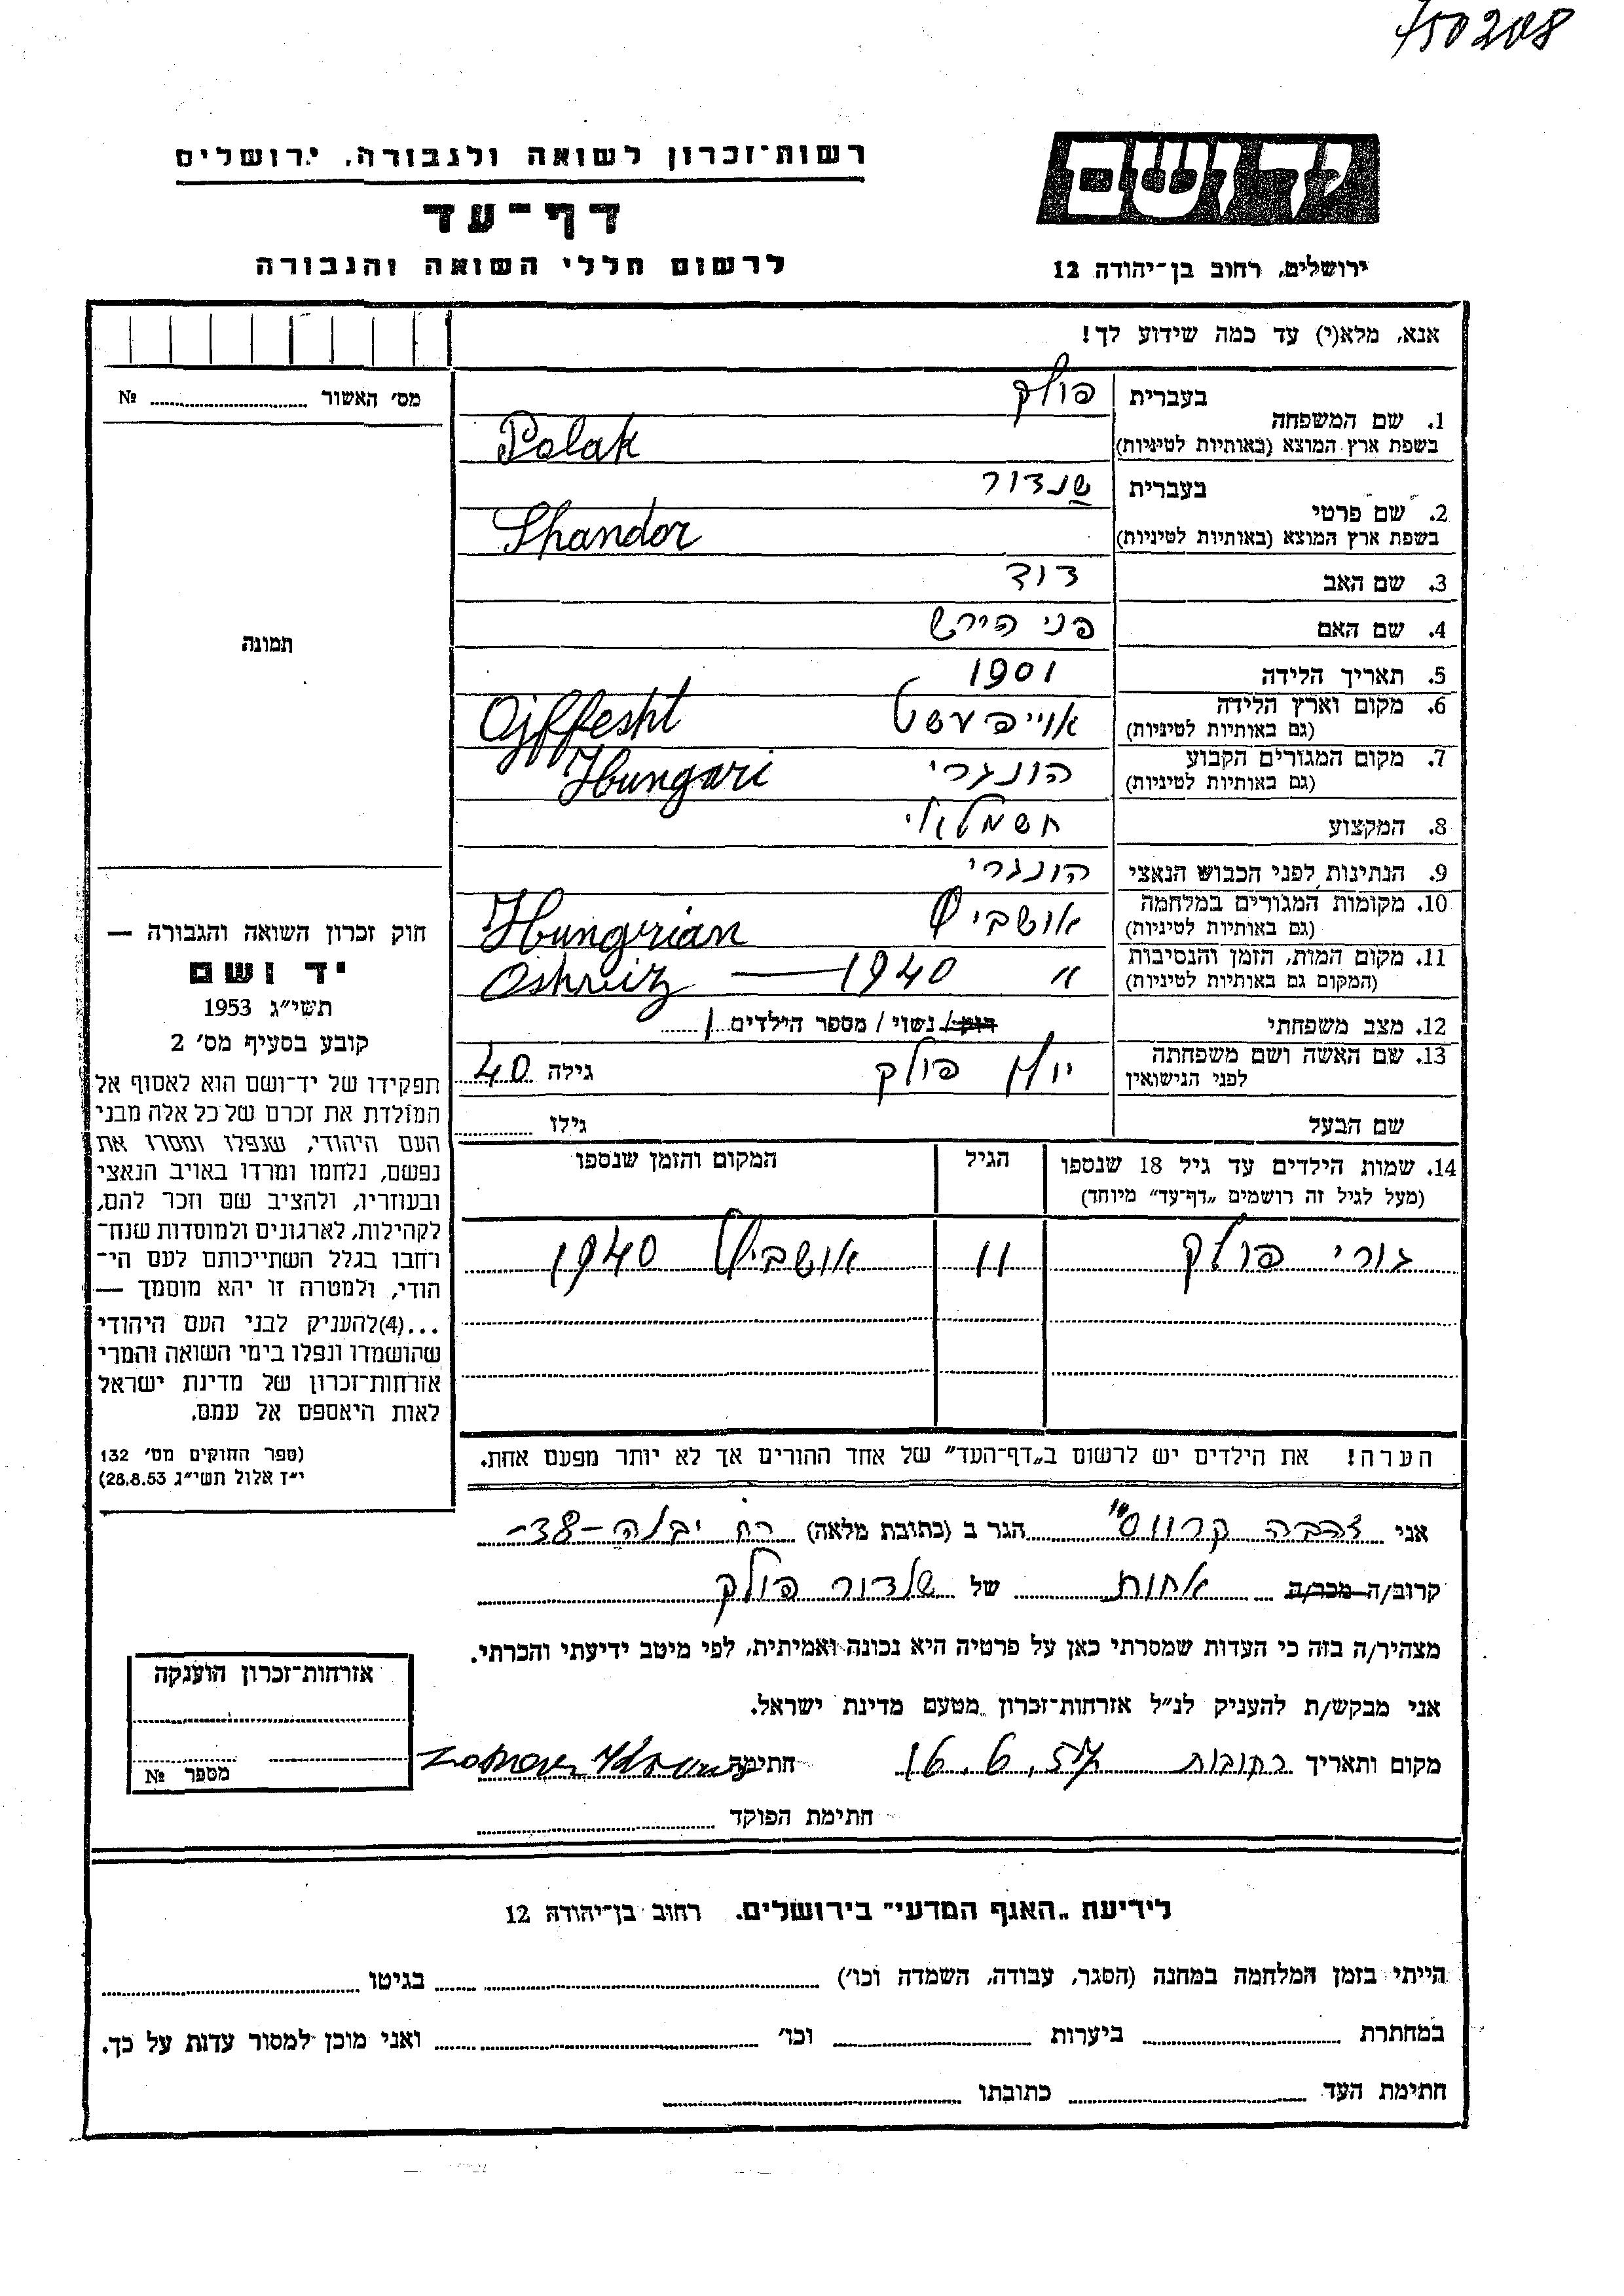 750208
רשות־זכרון לשואה ולגבורה, ירושלים
דף־עד
לרשום חללי השואה והגבורה
יד ושם
ירושלים, רחוב בן־יהודה 12
אנא, מלא(י) עד כמה שידוע לך!
מס׳ האשור № 
תמונה
חוק זכרון השואה והגבורה —
יד ושם
תשי״ג 1953
קובע בסעיף מס׳ 2
תפקידו של יד־ושם הוא לאסוף אל
המולדת את זכרם של כל אלה מבני
העם היהודי, שנפלו ומסרו את
נפשם, נלחמו ומרדו באויב הנאצי
ובעוזריו, ולהציב שם וזכר להם,
לקהילות, לארגונים ולמוסדות שנח־
רחבו בגלל השתייכותם לעם הי־
הודי, ולמטרה זו יהא מוסמך —
...(4)להעניק לבני העם היהודי
שהושמדו ונפלו בימי השואה והמרי
אזרחות־זכרון של מדינת ישראל
לאות היאספם אל עמם.
(ספר החוקים מס׳ 132
י״ז אלול תשי״ג 28.8.53)
1. שם המשפחה בעברית פולק
בשפת ארץ המוצא (באותיות לטיניות) Polak
2. שם פרטי בעברית שנדור
בשפת ארץ המוצא (באותיות לטיניות) Shandor
3. שם האב דוד
4. שם האם פני הירש
5. תאריך הלידה 1901
6. מקום וארץ הלידה אוייפעשט Ojffesht
(גם באותיות לטיניות)
7. מקום המגורים הקבוע הונגרי Hungari
(גם באותיות לטיניות)
8. המקצוע חשמלאי
9. הנתינות לפני הכבוש הנאצי הונגרי
10. מקומות המגורים במלחמה אושביץ Hungerian
(גם באותיות לטיניות)
11. מקום המות, הזמן והנסיבות " 1940 — Oshreiz
(המקום גם באותיות לטיניות)
12. מצב משפחתי רווק / נשוי / מספר הילדים 1
13. שם האשה ושם משפחתה פולק גילה 40
לפני הנישואין
שם הבעל גילו
14. שמות הילדים עד גיל 18 שנספו הגיל המקום והזמן שנספו
(מעל לגיל זה רושמים „דף־עד״ מיוחד)
גורי פולק 11 אושביץ 1940
הערה! את הילדים יש לרשום ב„דף־העד״ של אחד ההורים אך לא יותר מפעם אחת.
אני זהבה קרווס הגר ב (כתובת מלאה) רח יבנה -38-
קרוב/ה מכר/ה אחות של שנדור פולק
מצהיר/ה בזה כי העדות שמסרתי כאן על פרטיה היא נכונה ואמיתית, לפי מיטב ידיעתי והכרתי.
אני מבקש/ת להעניק לנ״ל אזרחות־זכרון מטעם מדינת ישראל.
מקום ותאריך רחובות 16.6.57 חתימה
חתימת הפוקד
אזרחות־זכרון הוענקה
מספר №
לידיעת „האגף המדעי״ בירושלים. רחוב בן־יהודה 12
הייתי בזמן המלחמה במחנה (הסגר, עבודה, השמדה וכו׳) בגיטו
במחתרת ביערות וכו׳ ואני מוכן למסור עדות על כך.
חתימת העד כתובתו